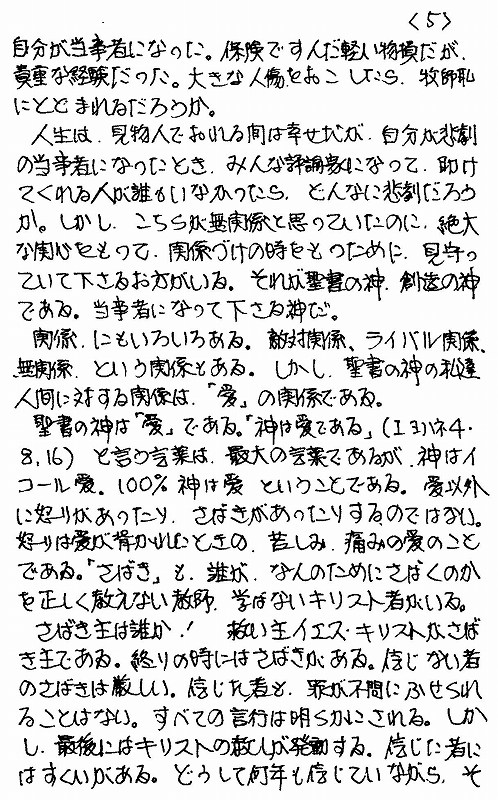 〈5〉
自分が当事者になった。保険ですんだ軽い物損だが、
貴重な経験だった。大きな人傷をおこしたら、牧師職
にとどまれるだろうか。
人生は、見物人でおれる間は幸せだが、自分が悲劇
の当事者になったとき、みんな評論家になって、助け
てくれる人が誰もいなかったら、どんなに悲劇だろう
か。しかし、こちらが無関係と思っていたのに、絶大
な関心をもって、関係づけの時をもつために、見守っ
ていて下さるお方がいる。それが聖書の神、創造の神
である。当事者になって下さる神だ。
関係、にもいろいろある。敵対関係、ライバル関係、
無関係、という関係もある。しかし、聖書の神の私達
人間に対する関係は、「愛」の関係である。
聖書の神は「愛」である。「神は愛である」(Ⅰヨハネ4・
8,16) と言う言葉は、最大の言葉であるが、神はイ
コール愛。100%神は愛 ということである。愛以外
に怒りがあったり、さばきがあったりするのではない。
怒りは愛が背かれたときの、苦しみ、痛みの愛のこと
である。「さばき」も、誰が、なんのためにさばくのか
を正しく教えない教師、学ばないキリスト者がいる。
さばき主は誰か! 救い主イエス・キリストがさば
き主である。終りの時にはさばきがある。信じない者
のさばきは厳しい。信じた者も、罪が不問にふせられ
ることはない。すべての言行は明らかにされる。しか
し、最後にはキリストの救いが発動する。信じた者に
はすくいがある。どうして何年も信じていながら、そ